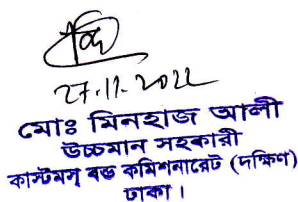 27.11.2022
মোঃ মিনহাজ আলী
উচ্চমান সহকারী
কাস্টমস্ বন্ড কমিশনারেট (দক্ষিণ)
ঢাকা।